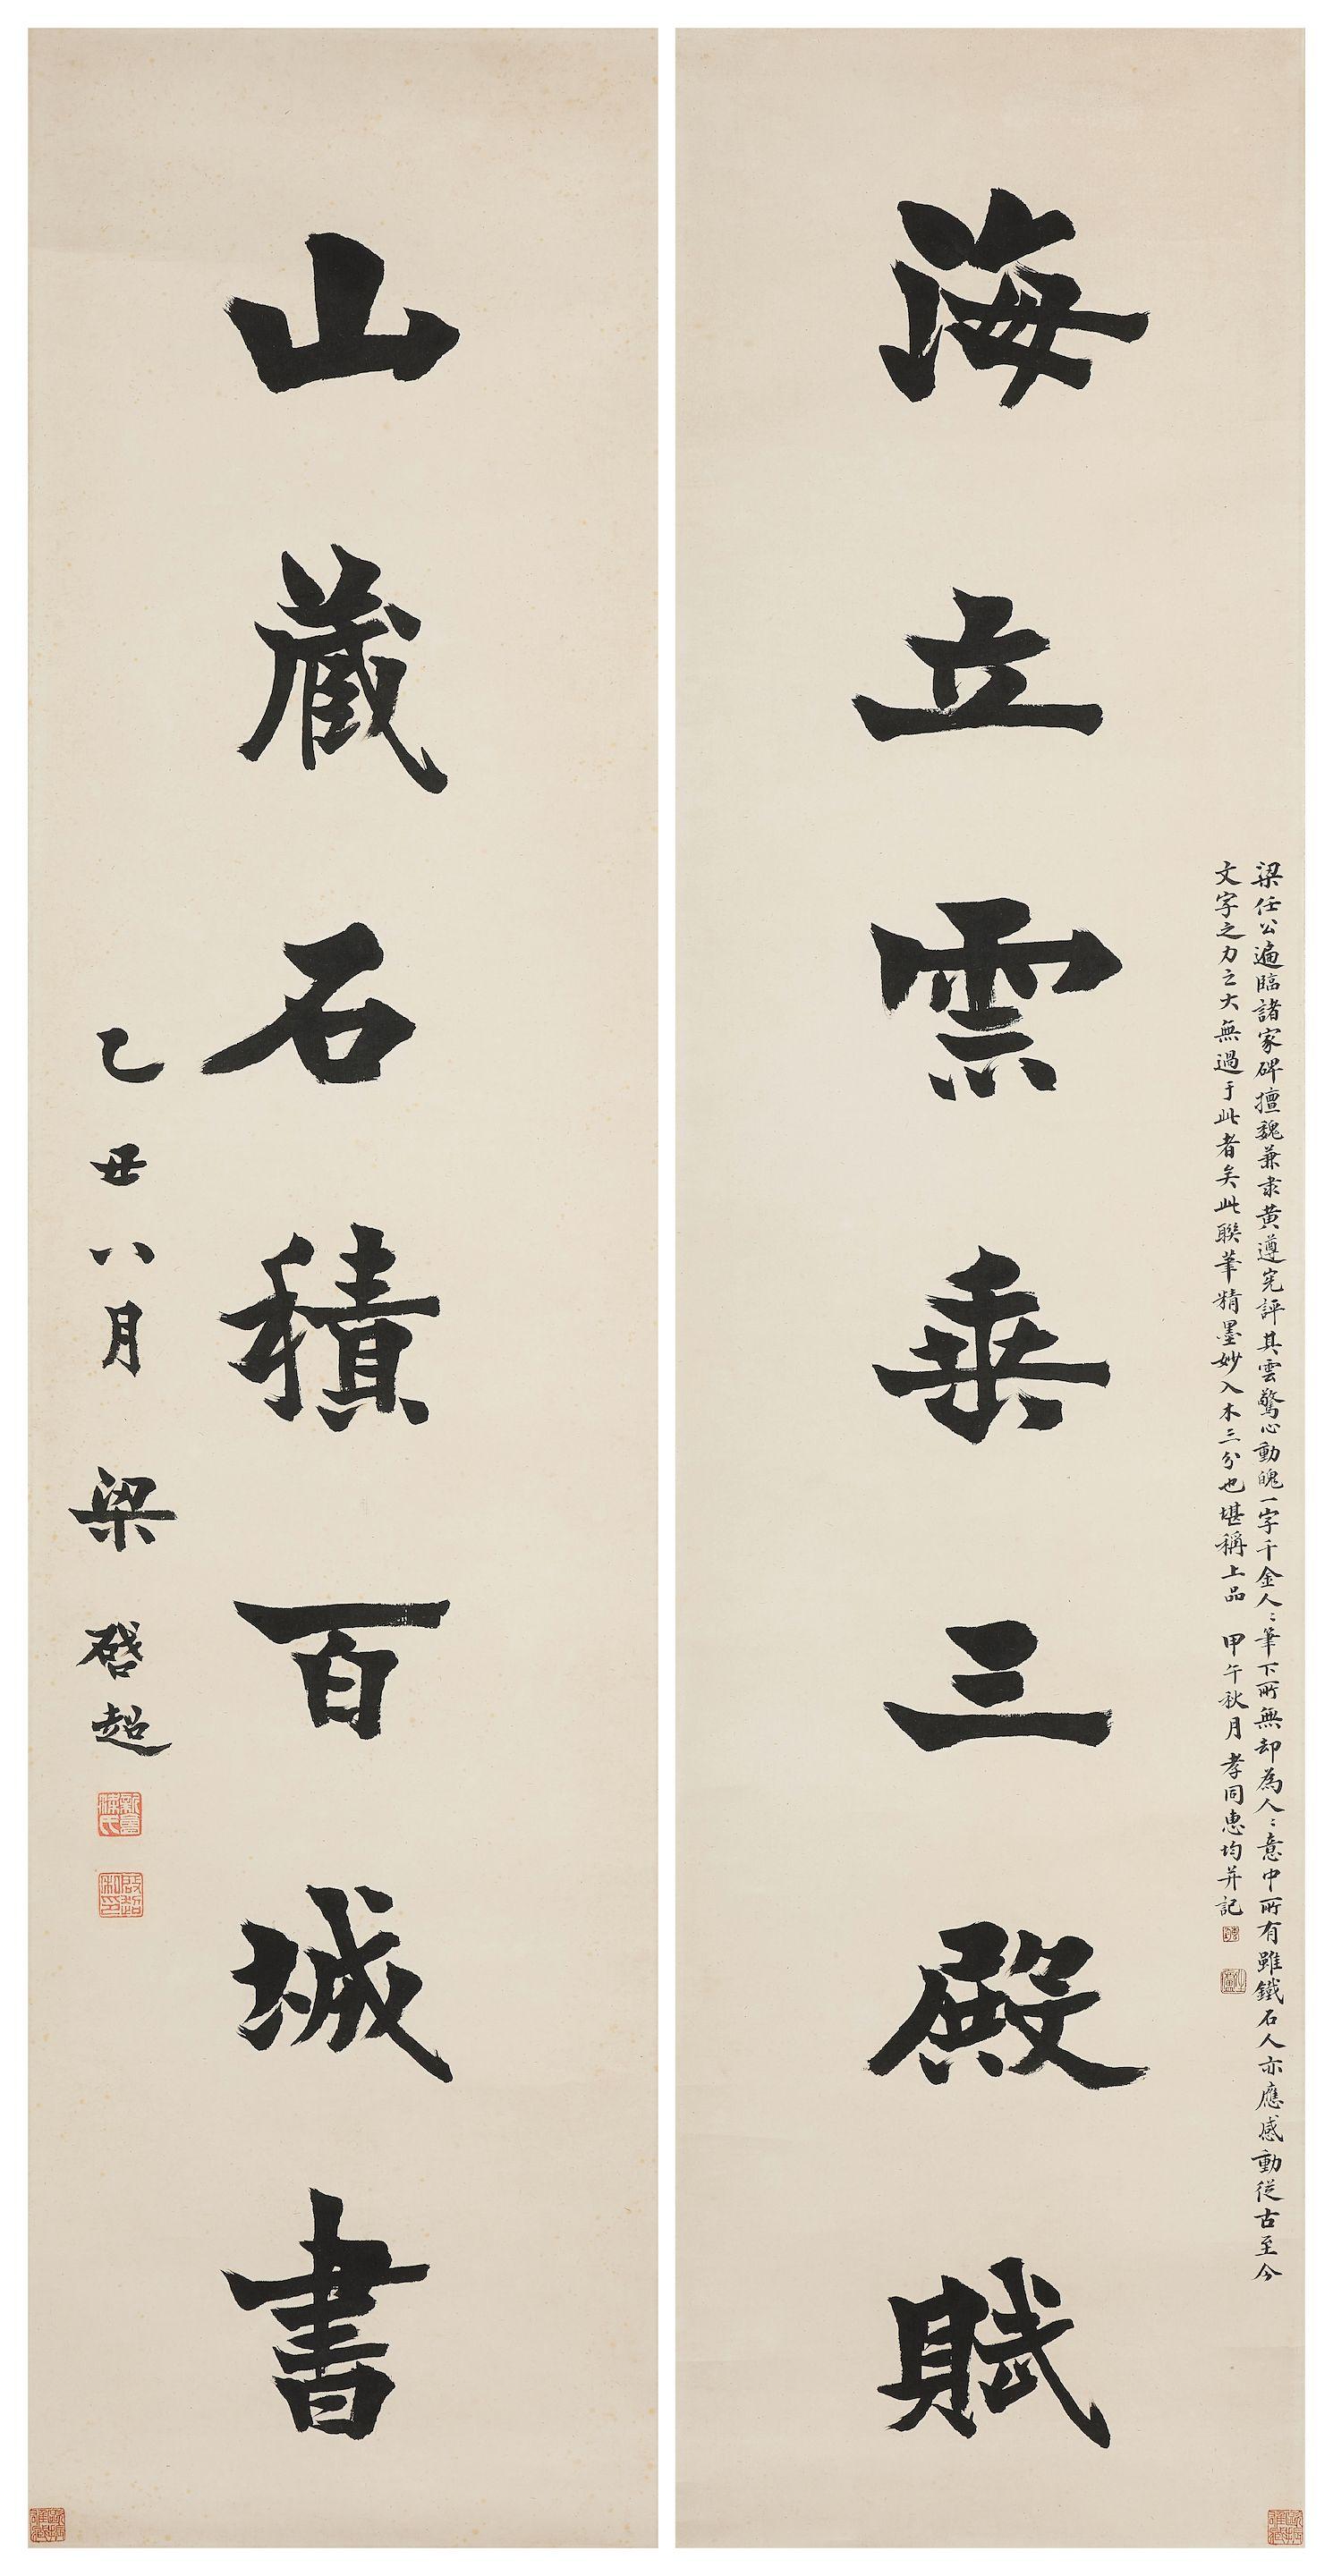 梁任公遍臨諸家碑擅魏兼隶黄遵宪評其雲驚心動魄一字千金人〻筆下所無却為人〻意中所有雖鐵石人亦應感動従古至今
文字之力之大無過于此者矣此聯筆精墨妙入木三分也堪稱上品 甲午秋月孝同惠均并記
海立雲垂三殿賦
山藏石積百城書
乙丑八月 梁啓超
新會梁氏
啟超私印